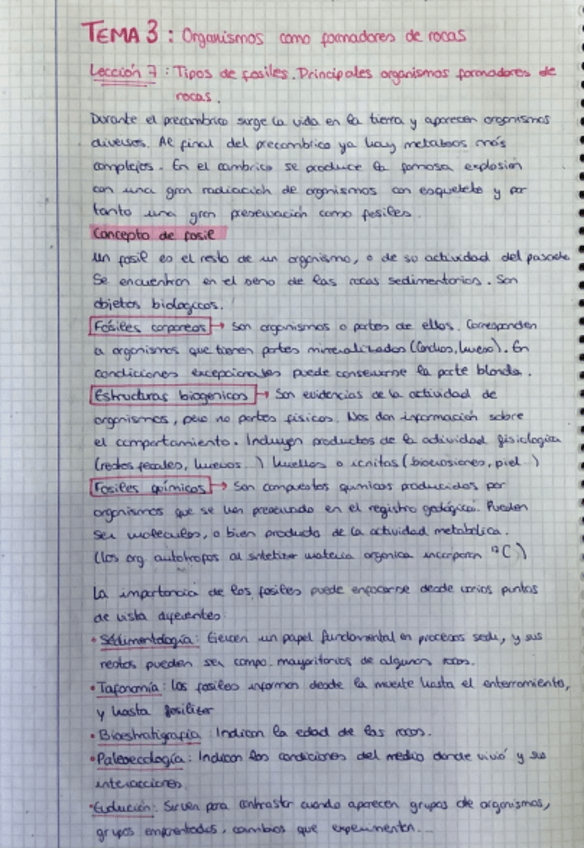 TEMA 3: Organismos como formadores de rocas
Lección 7: Tipos de fosiles. Principales organismos formadores de
rocas.
Durante el precambrico surge la vida en la tierra y aparecen organismos
diversos. Al final del precambrico ya hay metazoos más
complejos. En el cambrico se produce la famosa explosion
con una gran radiación de organismos con esqueleto y por
tanto una gran preservación como fosiles.
Concepto de fosil
Un fosil es el resto de un organismo, o de su actividad del pasado
Se encuentran en el seno de las rocas sedimentarias. Son
objetos biologicos.
Fósiles corporeos → Son organismos o partes de ellos. Corresponden
a organismos que tienen partes mineralizadas (, hueso). En
condiciones excepcionales puede conservarse la parte blanda.
Estructuras biogenicas → Son evidencias de la actividad de
organismos, pero no partes fisicas. Nos dan información sobre
el comportamiento. Incluyen productos de la actividad fisiologica
(restos fecales, huevos...) huellas o icnitas (bioerosiones, piel...)
Fosiles químicos → Son compuestos quimicos producidos por
organismos que se han preservado en el registro geológico. Pueden
ser moleculas, o bien producto de la actividad metabolica.
(los org autotrofos al sintetizar materia organica incorporan C)
La importancia de los fosiles puede enfocarse desde varios puntos
de vista diferentes:
• Sedimentología: Ejercen un papel fundamental en procesos sedi, y sus
restos pueden ser compo. mayoritarios de algunas rocas.
• Tafonomía: los fosiles informan desde la muerte hasta el enterramiento,
y hasta fosilizar
• Bioestratigrafia: Indican la edad de las rocas.
• Paleoecología: Indican las condiciones del medio donde vivió y sus
interacciones
• Evolución: Sirven para contrastar cuando aparecen grupos de organismos,
grupos emparentados, cambios que experimentan...